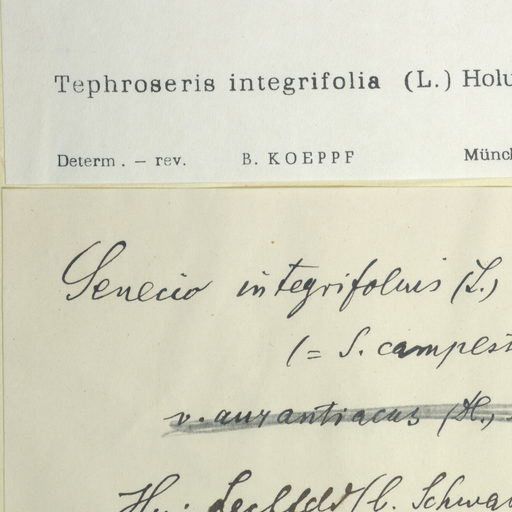 Tephroseris integrifolia (L.) Holu
Determ. – rev. B. KOEPPF Münc
Senecio integrifolius (L.)
(= S. campest
v. aurantiacus (H.)
Hy: Lechfeld (b. Schwa